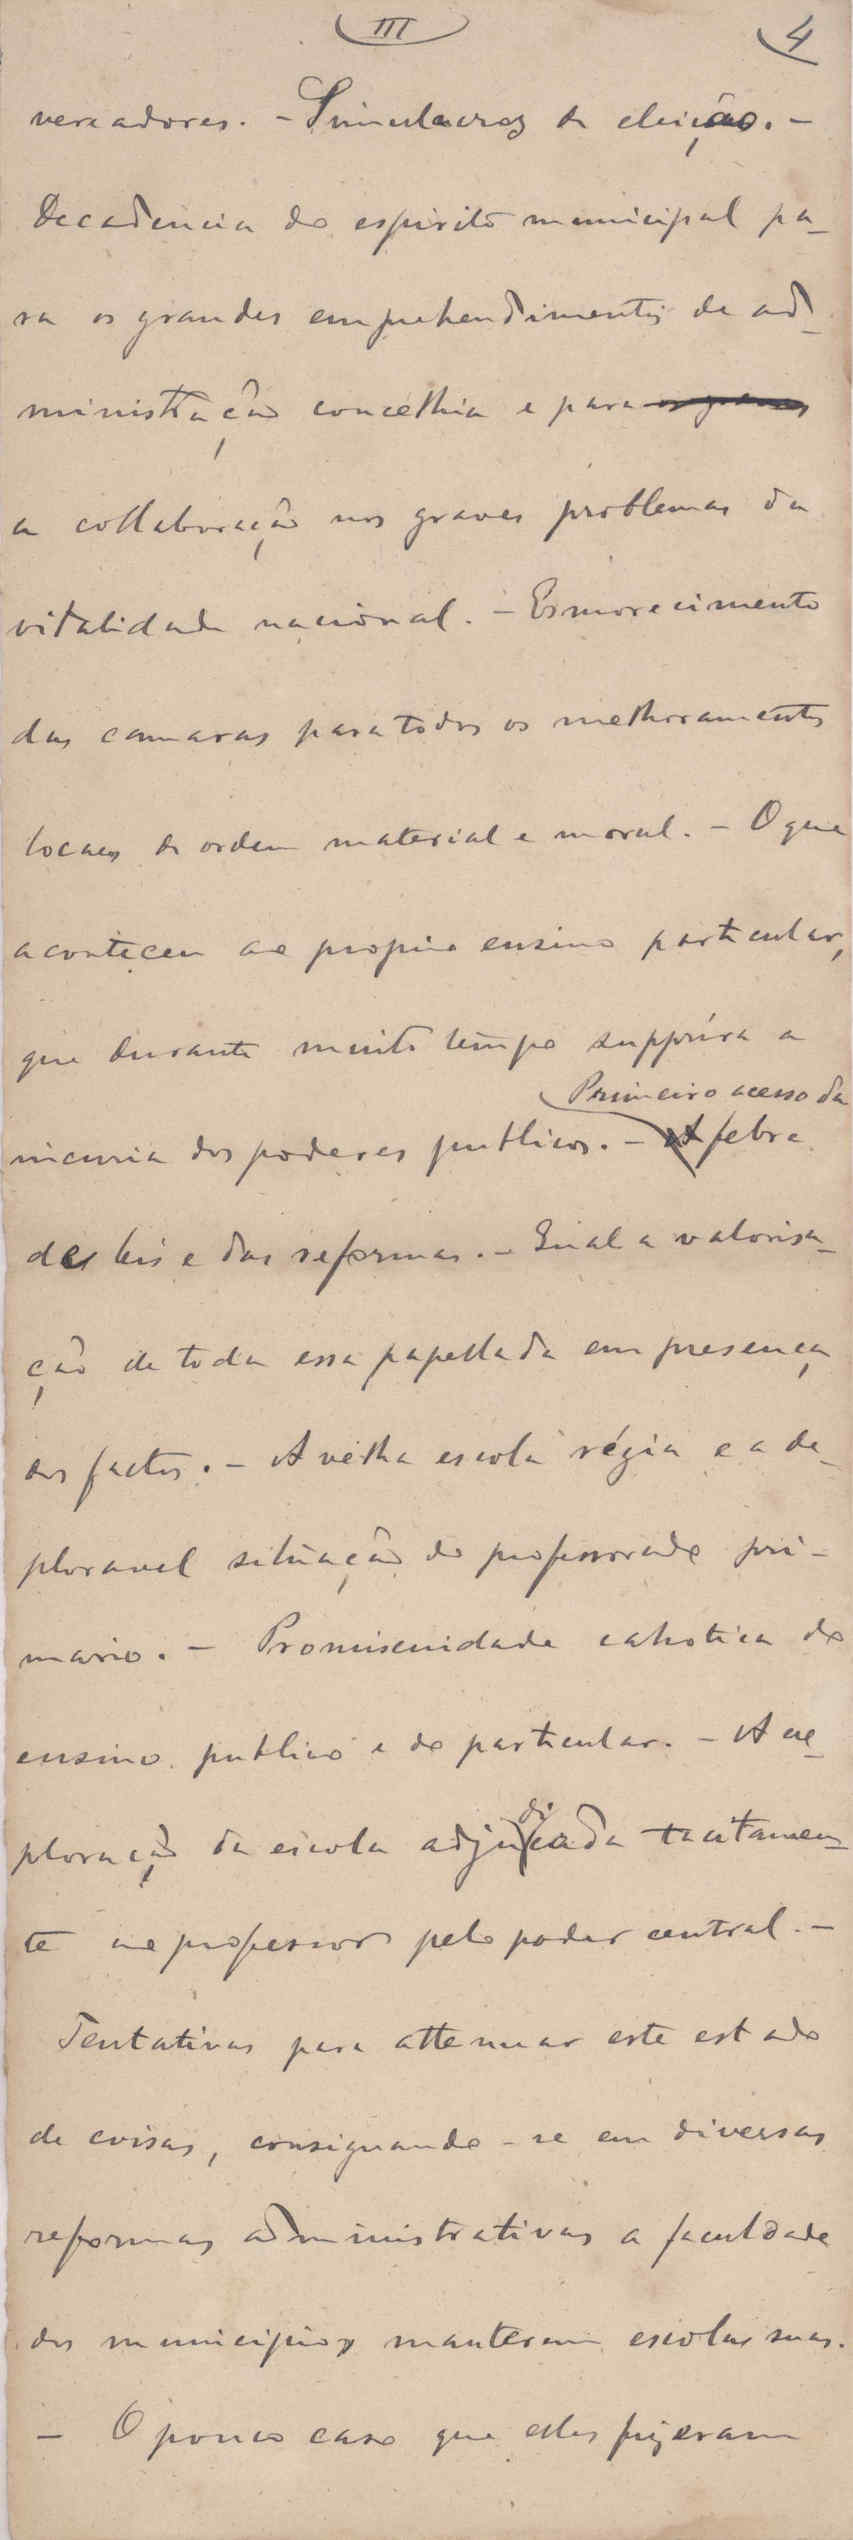 III
4
vereadores. - Simulacros de eleição. -
Decadencia do espirito municipal pa-
ra os grandes emprehendimentos de ad-
ministração concelhia e para os graves
a collaboração nos graves problemas da
vitalidade nacional. - Esmorecimento
das camaras para todos os melhoramentos
locaes de ordem material e moral. - O que
aconteceu ao proprio ensino particular,
que durante muito tempo supprira a
Primeiro acesso da
incuria dos poderes publicos. - A febre
das leis e das reformas. - Qual a valorisa-
ção de toda essa papellada em presença
dos factos. - A velha escola régia e a de-
ploravel situação do professorado pri-
mario. - Promiscuidade cahotica do
ensino publico e do particular. - A ex-
di
ploração da escola adjucada tacitamen-
te ao professor pelo poder central. -
Tentativas para attenuar este estado
de coisas, consignando-se em diversas
reformas administrativas a faculdade
dos municipios manterem escolas suas.
- O pouco caso que elles fizeram